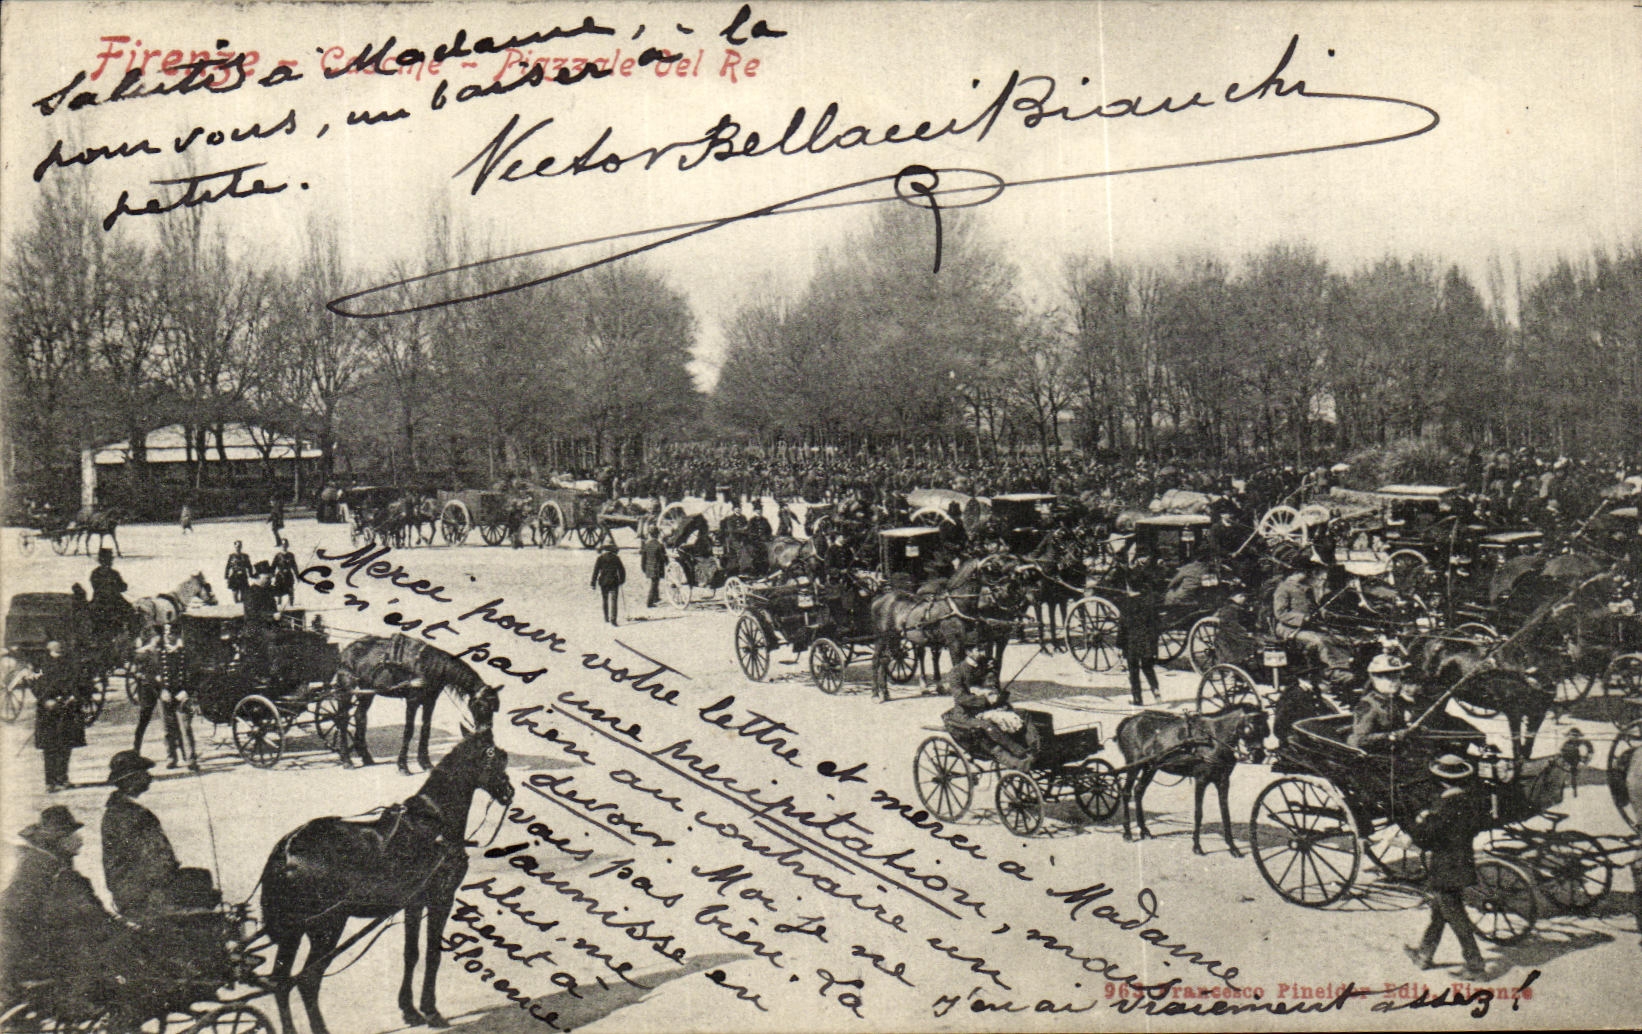 Firenze - Cascine - Piazzale Del Re
Saluts à Madame, à la
pour vous, un baiser à
petite.
Victor Bellacci Bianchi
Merci pour votre lettre et merci à Madame
Ce n'est pas une précipitation, mais
bien au contraire un
devoir. Moi je ne
vais pas bien. La
Jaunisse en
plus, me
tient à
Florence.
J'en ai vraiement assez!
963 Francesco Pineider Edit. Firenze